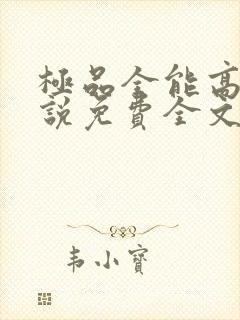 極品全能高
說免費全文
韦小寶